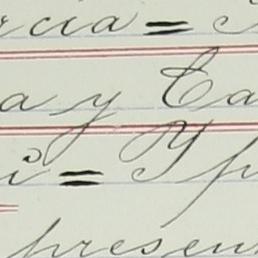 rcia =
a y Ca
i = Y p
presen